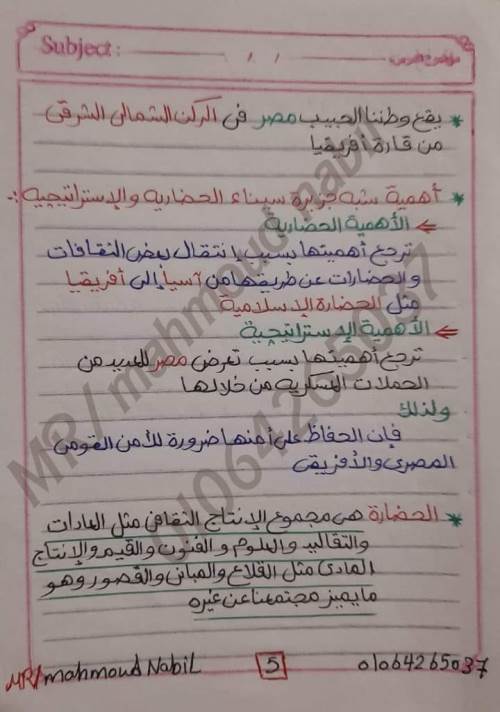 Subject: / / موضوع الدرس:
* يقع وطننا الحبيب مصر فى الركن الشمالى الشرقى
من قارة أفريقيا
* أهمية شبه جزيرة سيناء الحضارية والإستراتيجية :-
⇐ الأهمية الحضارية
ترجع أهميتها بسبب إنتقال بعض الثقافات
والحضارات عن طريقها من آسيا إلى أفريقيا
مثل الحضارة الإسلامية
⇐ الأهمية الإستراتيجية
ترجع أهميتها بسبب تعرض مصر للعديد من
الحملات العسكرية من خلالها
ولذلك
فإن الحفاظ على أمنها ضرورة للأمن القومى
المصرى والأفريقى
* الحضارة هى مجموع الإنتاج الثقافى مثل العادات
والتقاليد والعلوم والفنون والقيم والإنتاج
المادى مثل القلاع والمبانى والقصور وهو
ما يميز مجتمعنا عن غيره
MR/mahmoud Nabil 5 01064265037
MR/ mahmoud nabil
01064265037